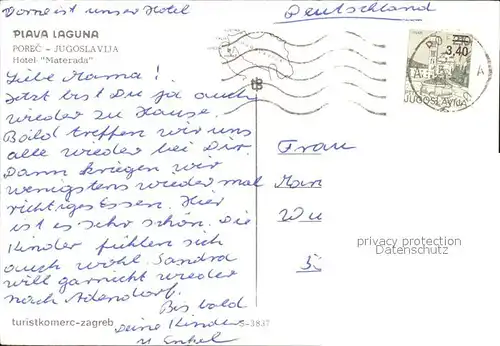 Vorne ist unser Hotel
Deutschland
PLAVA LAGUNA
POREČ – JUGOSLAVIJA
Hotel "Materada"
3,40
JUGOSLAVIJA
A
Liebe Mama!
Jetzt bist Du ja auch
wieder zu Hause.
Bald treffen wir uns
alle wieder bei Dir.
Dann kriegen wir
wenigstens wieder mal
richtiges Essen. Hier
ist es sehr schön. Die
Kinder fühlen sich
auch wohl. Sandra
will garnicht wieder
nach Adendorf.
Bis bald
Deine Kinder
u Enkel
Frau
privacy protection
Datenschutz
turistkomerc-zagreb
S-3837